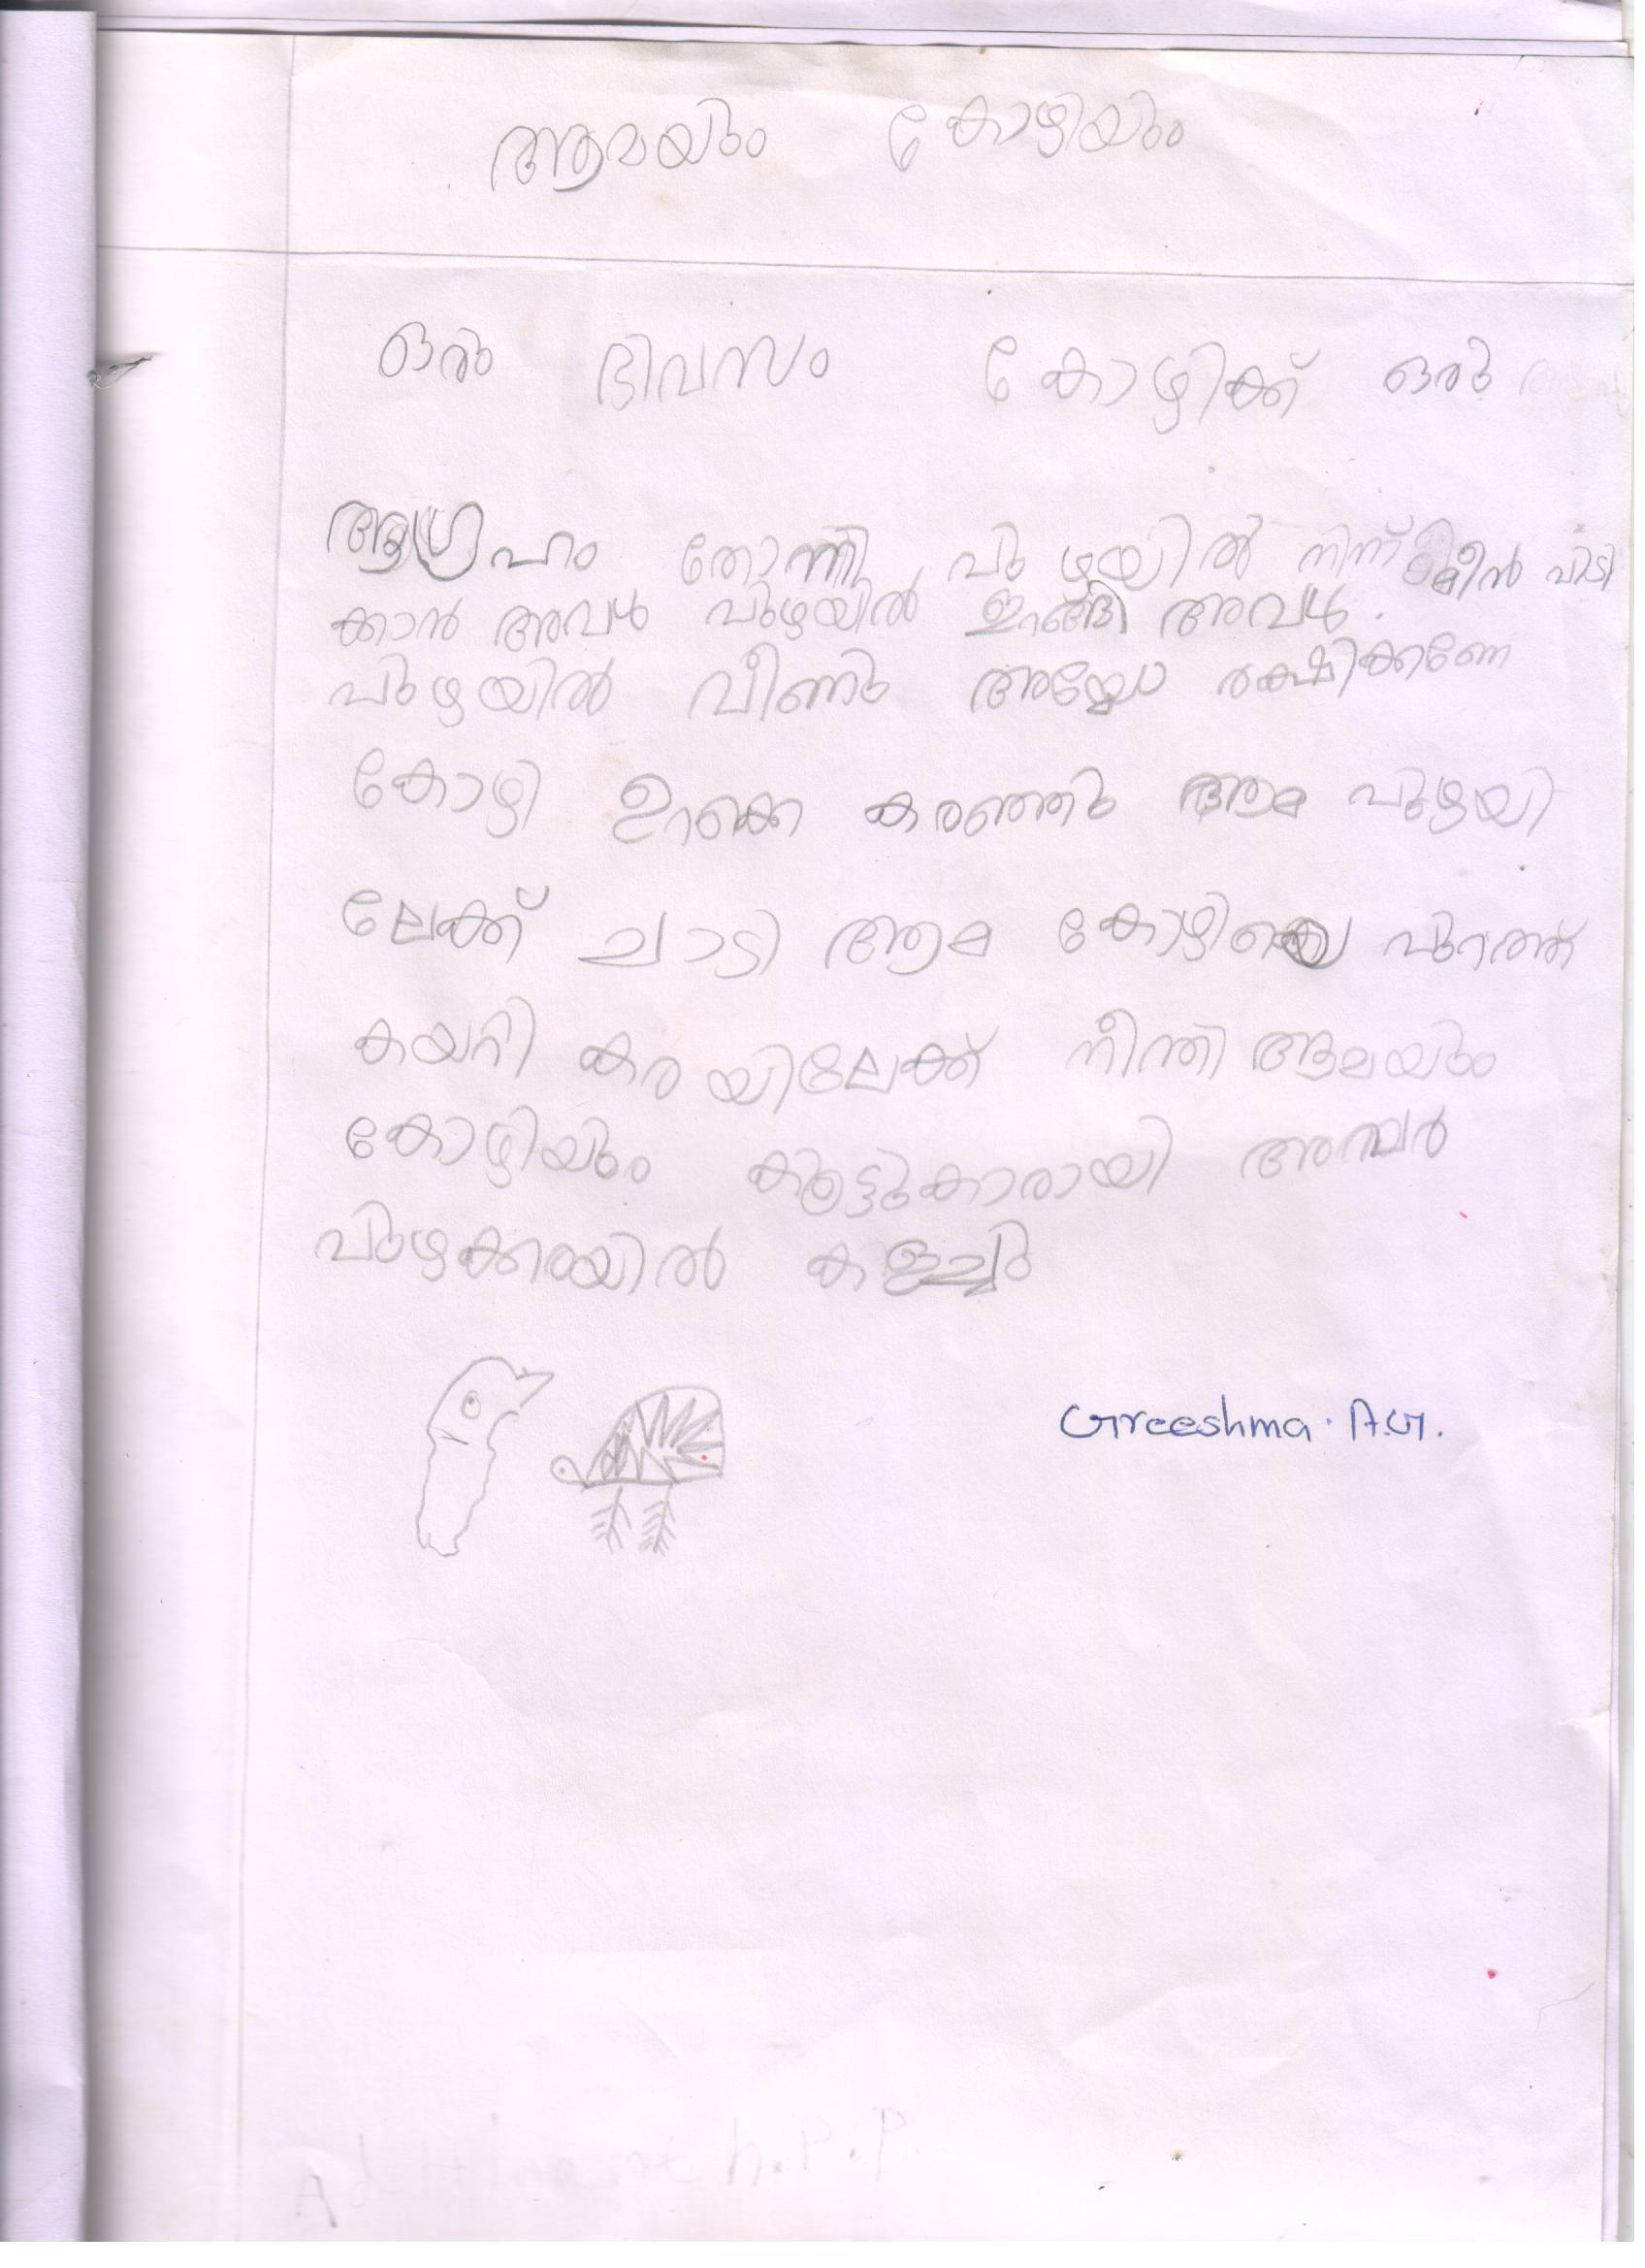 ആമയും കോഴിയും
ഒരു ദിവസം കോഴിക്ക് ഒരു
ആഗ്രഹം തോന്നി പുഴയിൽ നിന്ന് മീൻ പിടി
ക്കാൻ അവൾ പുഴയിൽ ഇറങ്ങി അവൾ.
പുഴയിൽ വീണു അയ്യോ രക്ഷിക്കണേ
കോഴി ഉറക്കെ കരഞ്ഞു ആമ പുഴയി
ലേക്ക് ചാടി ആമ കോഴിയെ പുറത്ത്
കയറി കരയിലേക്ക് നീന്തി ആമയും
കോഴിയും കൂട്ടുകാരായി അവർ
പുഴക്കരയിൽ കളിച്ചു
Greeshma. A.G.